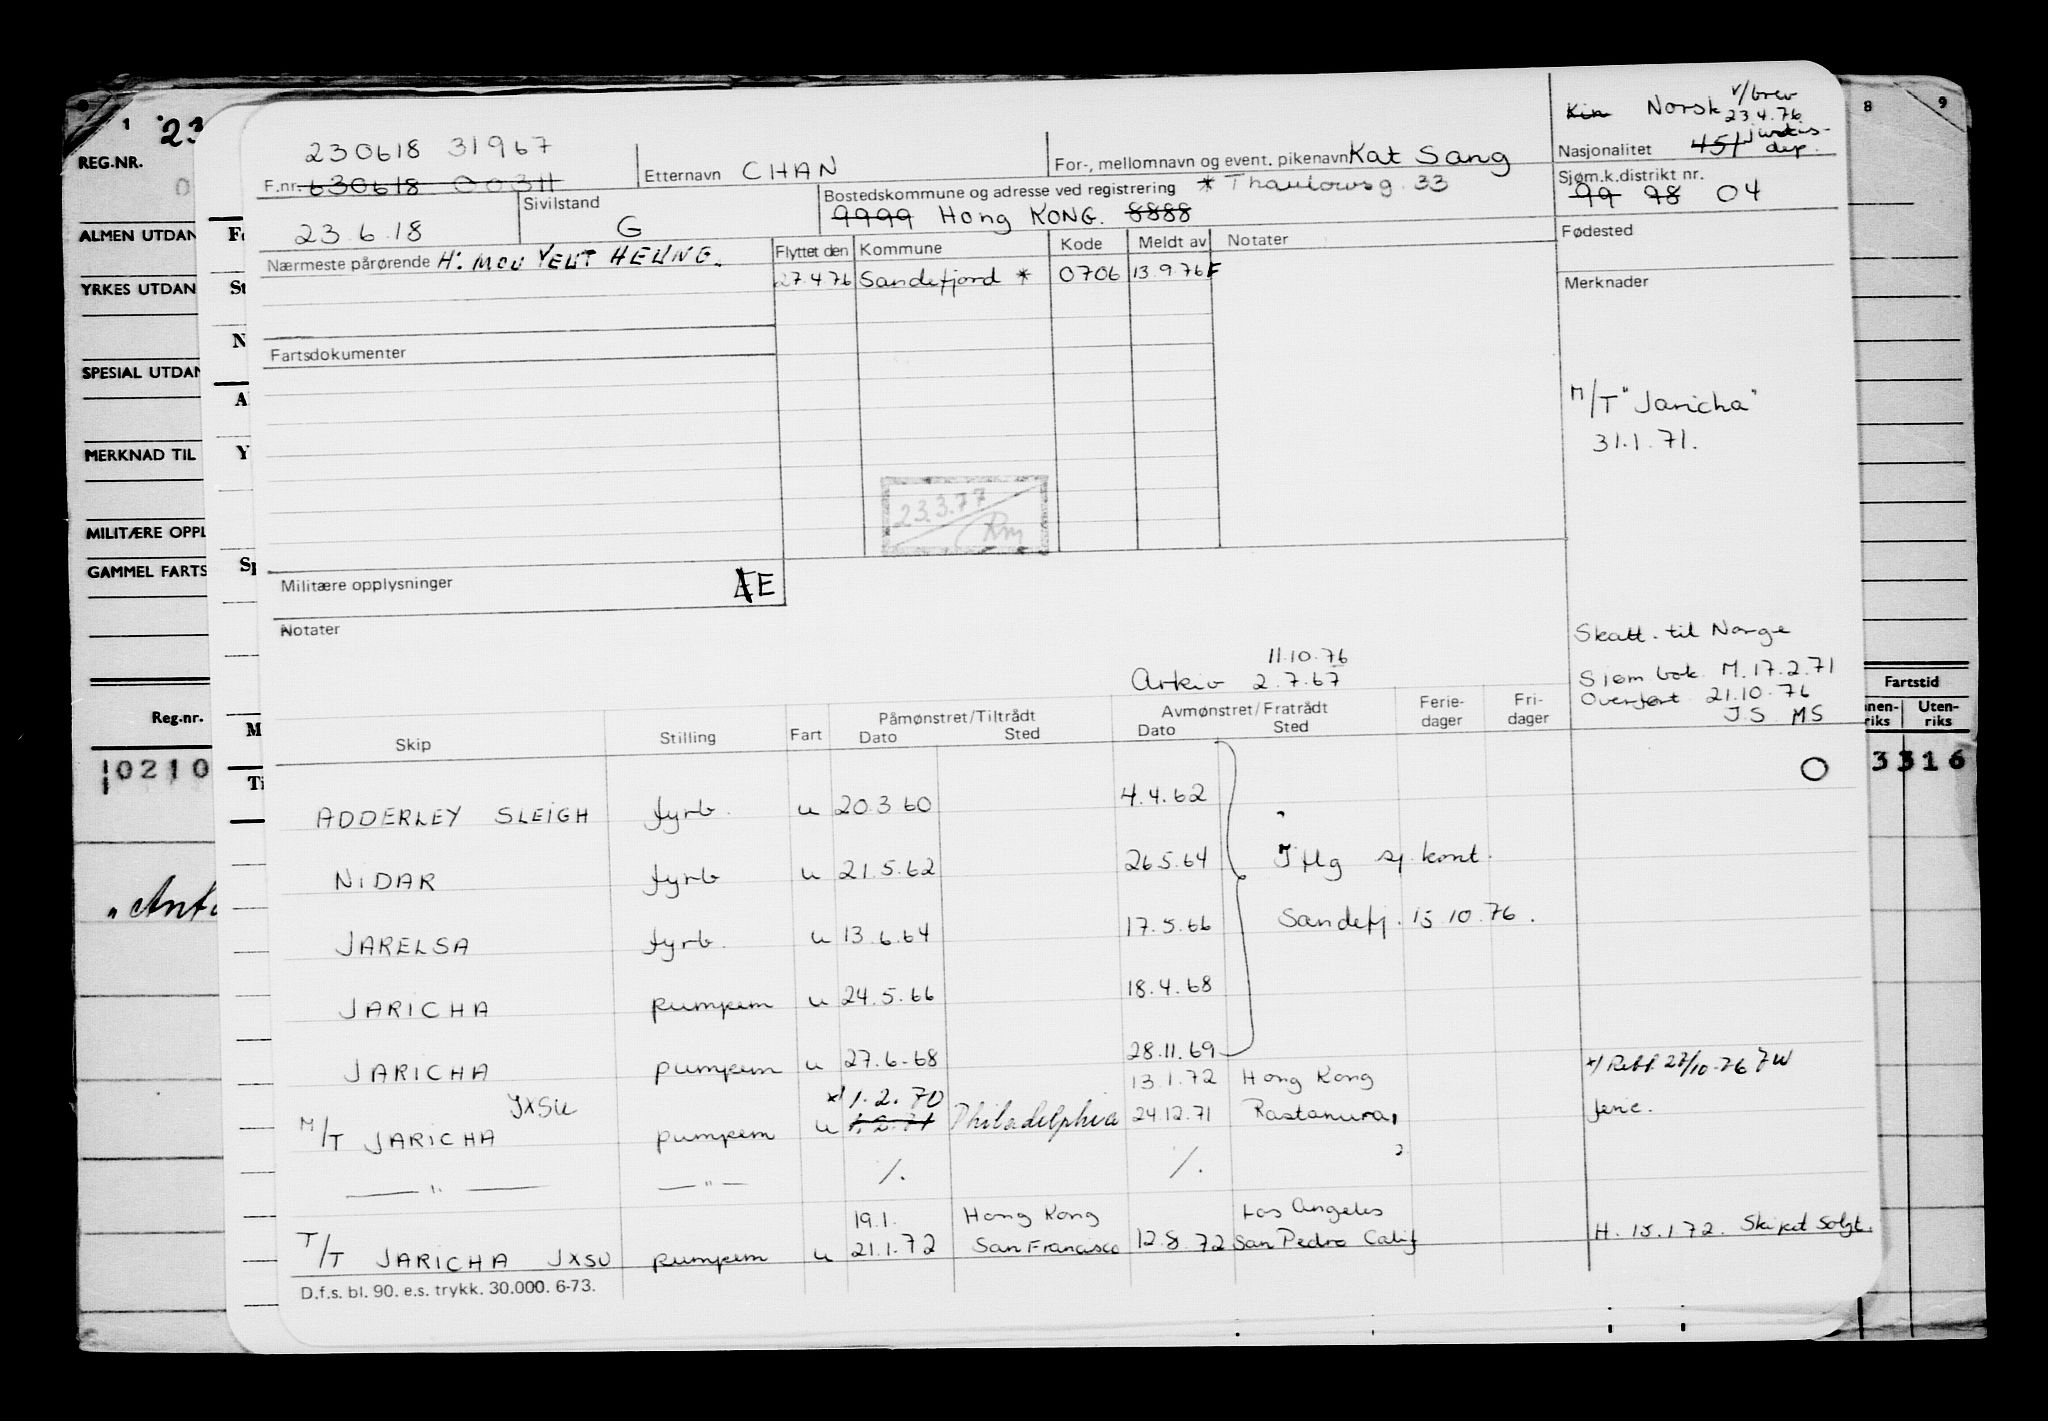 1 23
REG.NR.
0
ALMEN UTDAN
YRKES UTDAN
SPESIAL UTDAN
MERKNAD TIL
MILITÆRE OPPL
GAMMEL FARTS
Reg-nr.
0210
"Anto
8 9
Fartstid
nnen-riks Uten-riks
3316
230618 31967
F.nr. 630618 00311
Etternavn CHAN
For-, mellomnavn og event. pikenavn Kat Sang
Kin Norsk v/brev 23.4.76
Nasjonalitet 451 justis-dep.
23.6.18
Sivilstand
G
Bostedskommune og adresse ved registrering * Thaulowsg. 33
9999 Hong KONG. 8888
Sjøm.k.distrikt nr.
99 98 04
Nærmeste pårørende H: MOU YEUT HEUNG.
Flyttet den Kommune Kode Meldt av Notater
27.4.76 Sandefjord * 0706 13.9.76 F
Fødested
Merknader
Fartsdokumenter
M/T "Jaricha"
31.1.71.
23.3.77
Rm
Militære opplysninger E
Notater
Skatt. til Norge
Sjøm bok M. 17.2.71
Overført 21.10.76
J.S. MS
11.10.76
Arkiv 2.7.67
Skip Stilling Fart Påmønstret/Tiltrådt Dato Sted Avmønstret/Fratrådt Dato Sted Ferie-dager Fri-dager
O
ADDERLEY SLEIGH fyrb. u 20.3.60 4.4.62
NIDAR fyrb u 21.5.62 26.5.64 Iflg sj.kont.
JARELSA fyrb. u 13.6.64 17.5.66 Sandefj. 15.10.76.
JARICHA pumpem u 24.5.66 18.4.68
JARICHA pumpem u 27.6.68 28.11.69
*/ 1.2.70 13.1.72 Hong Kong */ Rett. 27/10-76 JW
M/T JARICHA JXSU pumpem u 1.2.71 Philadelphia 24.12.71 Rastanura, ferie.
— " — — " — ./. ./.
19.1. Hong Kong Los Angeles
T/T JARICHA JXSU pumpem u 21.1.72 San Francisco 12.8.72 San Pedro Calif H. 15.1.72. Skipet Solgt.
D.f.s. bl. 90. e.s. trykk. 30.000. 6-73.